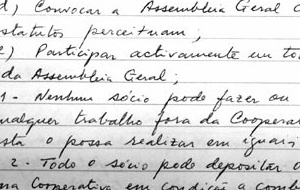 d) Convocar a Assembleia Geral
statutos perceituam;
e) Participar activamente em to
da Assembleia Geral;
1 - Nenhum sócio pode fazer ou
ualquer trabalho fora da Cooperat
sta o possa realizar em iguais
2 - Todo o sócio pode depositar
na Cooperativa em condição a com